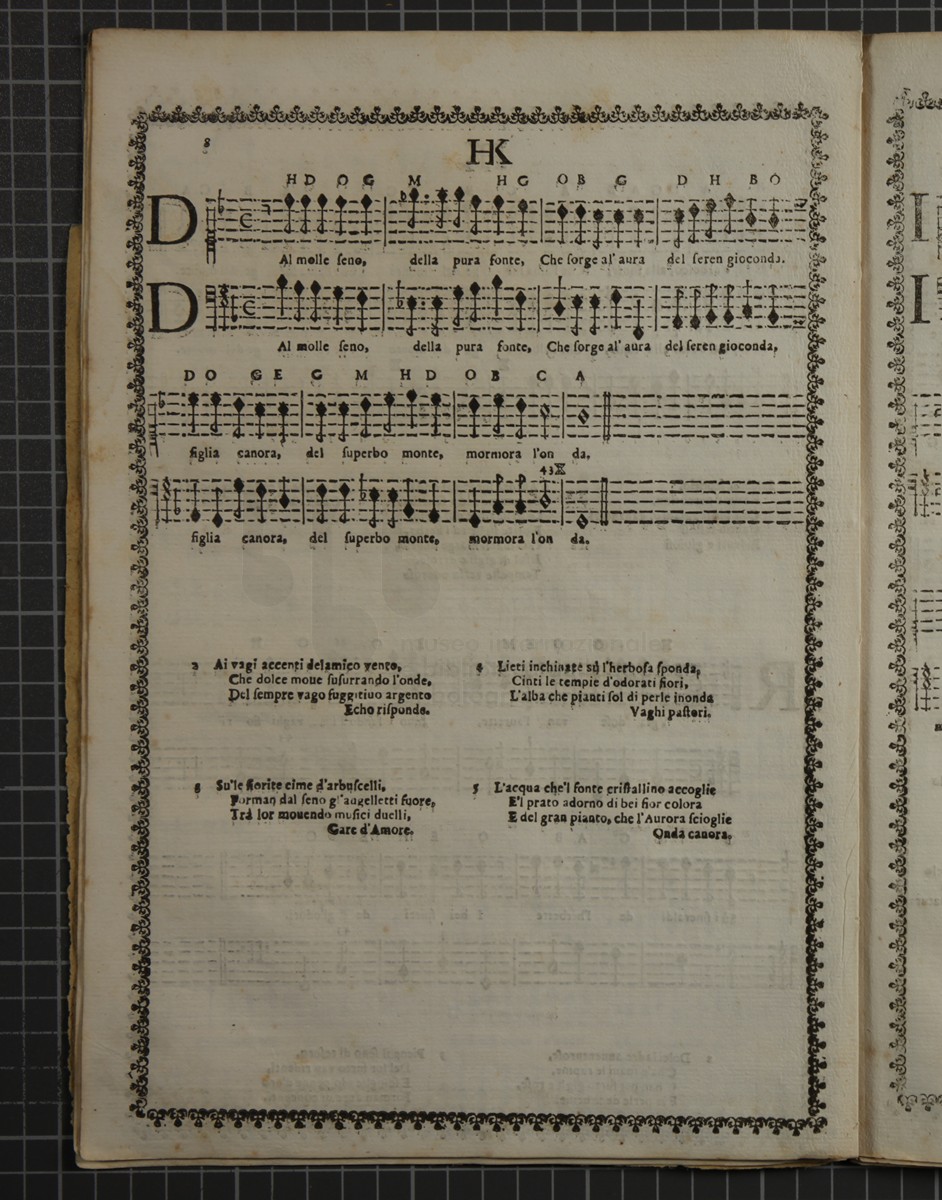 8
HK
H D O G M H G O B G D H B O
D
Al molle seno, della pura fonte, Che sorge al'aura del seren gioconda.
D
Al molle seno, della pura fonte, Che sorge al'aura del seren gioconda,
D O G E G M H D O B C A
figlia canora, del superbo monte, mormora l'on da.
43X
figlia canora, del superbo monte, mormora l'on da.
2 Ai vagi accenti delamico vento,
Che dolce moue susurrando l'onde,
Del sempre vago fuggitiuo argento
Echo risponde.
4 Lieti inchinate sù l'herbosa sponda,
Cinti le tempie d'odorati fiori,
L'alba che pianti sol di perle inonda
Vaghi pastori.
Su'le fiorite cime d'arbuscelli,
Forman dal seno gl'augelletti fuore,
Trà lor mouendo musici duelli,
Gare d'Amore.
5 L'acqua che'l fonte cristallino accoglie
E'l prato adorno di bei fior colora
E del gran pianto, che l'Aurora scioglie
Onda canora.